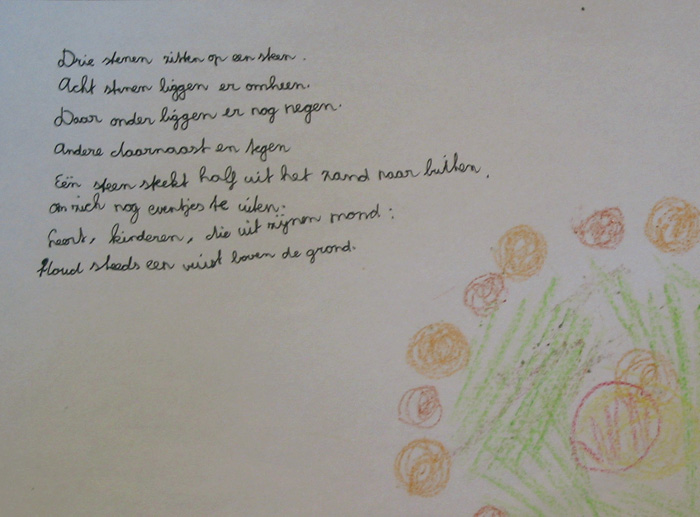 Drie stenen zitten op een steen.
Acht stenen liggen er omheen.
Daar onder liggen er nog negen.
Andere daarnaast en tegen
Eén steen steekt half uit het zand naar buiten.
om zich nog eventjes te uiten.
hoort, kinderen, die uit zijnen mond:
Houd steeds een vuist boven de grond.